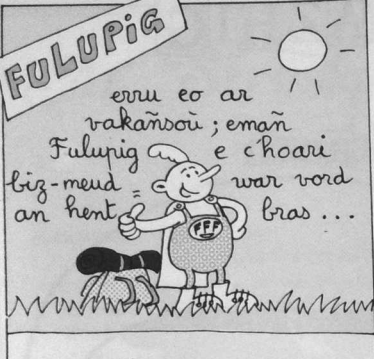 FULUPiG
erru eo ar
vakañsoù ; emañ
Fulupig e c'hoari
biz-meud = war vord
an hent bras ...
FFF